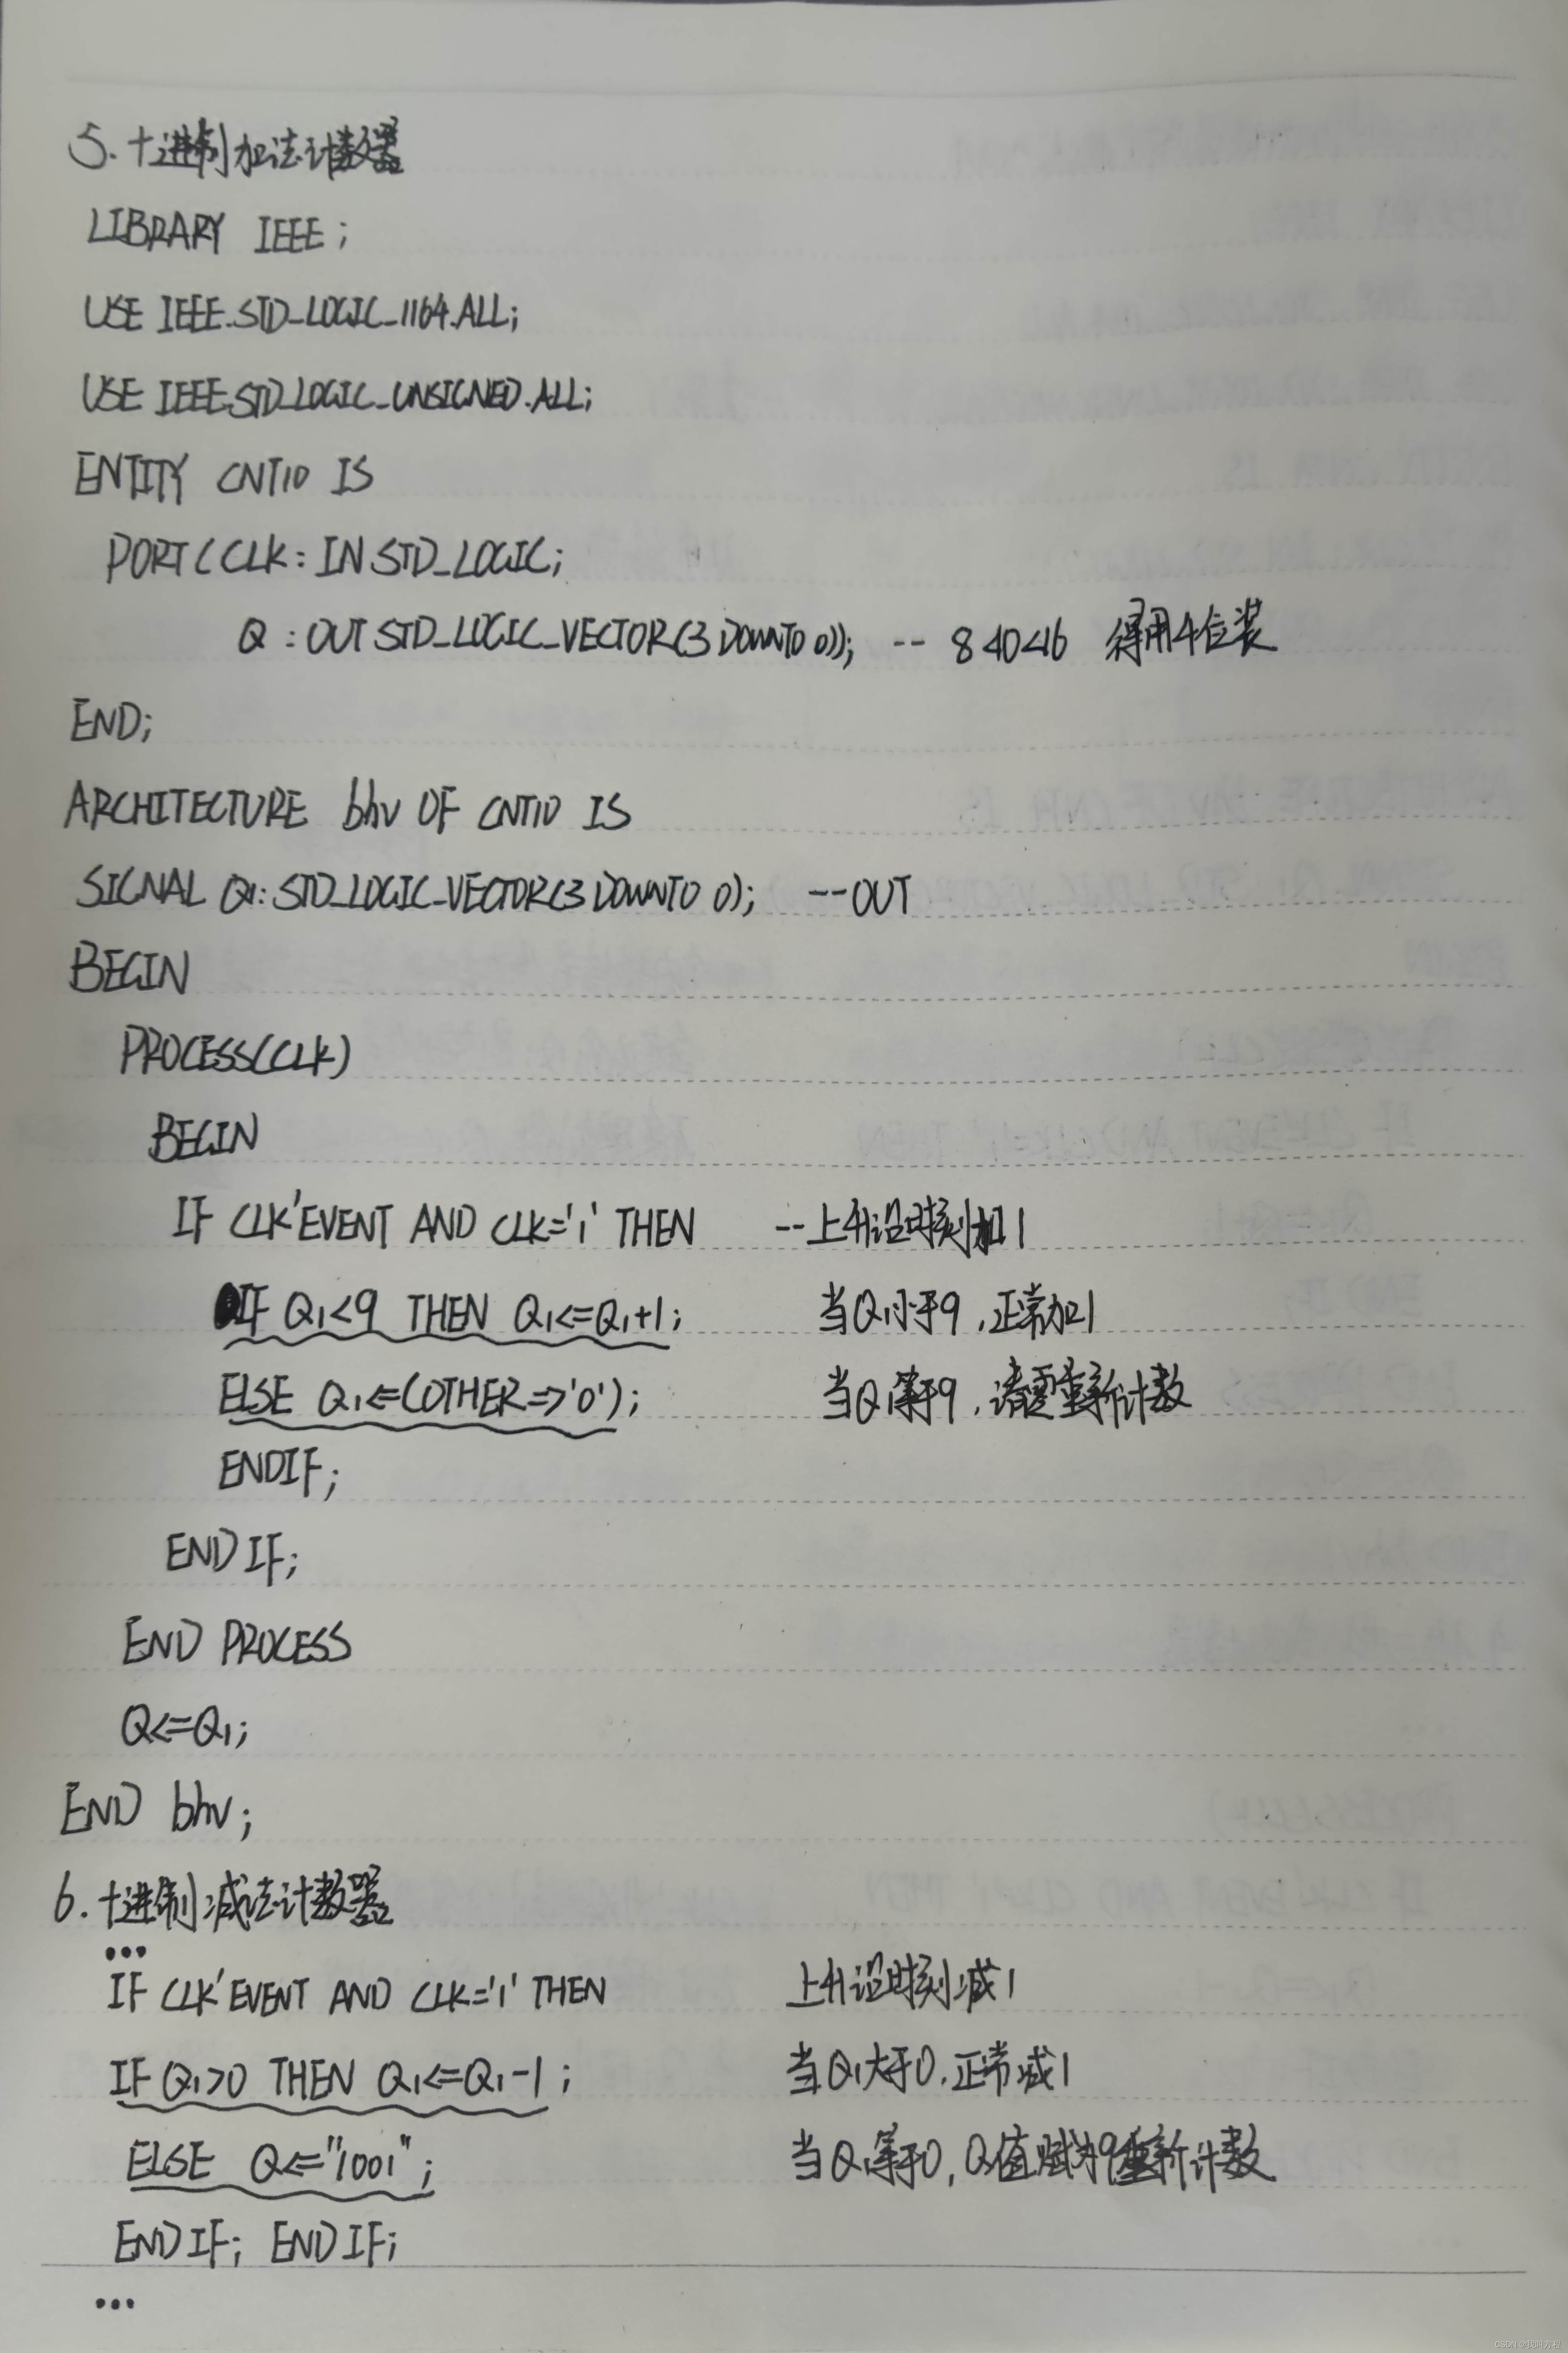 5.十进制加法计数器
LIBRARY IEEE;
USE IEEE.STD_LOGIC_1164.ALL;
USE IEEE.STD_LOGIC_UNSIGNED.ALL;
ENTITY CNT10 IS
PORT(CLK:IN STD_LOGIC;
Q:OUT STD_LOGIC_VECTOR(3 DOWNTO 0)); -- 8<10<16 得用4位装
END;
ARCHITECTURE bhv OF CNT10 IS
SIGNAL Q1:STD_LOGIC_VECTOR(3 DOWNTO 0); --OUT
BEGIN
PROCESS(CLK)
BEGIN
IF CLK'EVENT AND CLK='1' THEN --上升沿时刻加1
IF Q1<9 THEN Q1<=Q1+1; 当Q1小于9,正常加1
ELSE Q1<=(OTHER=>'0'); 当Q1等于9,清零重新计数
ENDIF;
END IF;
END PROCESS
Q<=Q1;
END bhv;
6.十进制减法计数器
...
IF CLK'EVENT AND CLK='1' THEN 上升沿时刻减1
IF Q1>0 THEN Q1<=Q1-1; 当Q1大于0,正常减1
ELSE Q<="1001"; 当Q1等于0,Q1值赋为9重新计数
END IF; END IF;
...